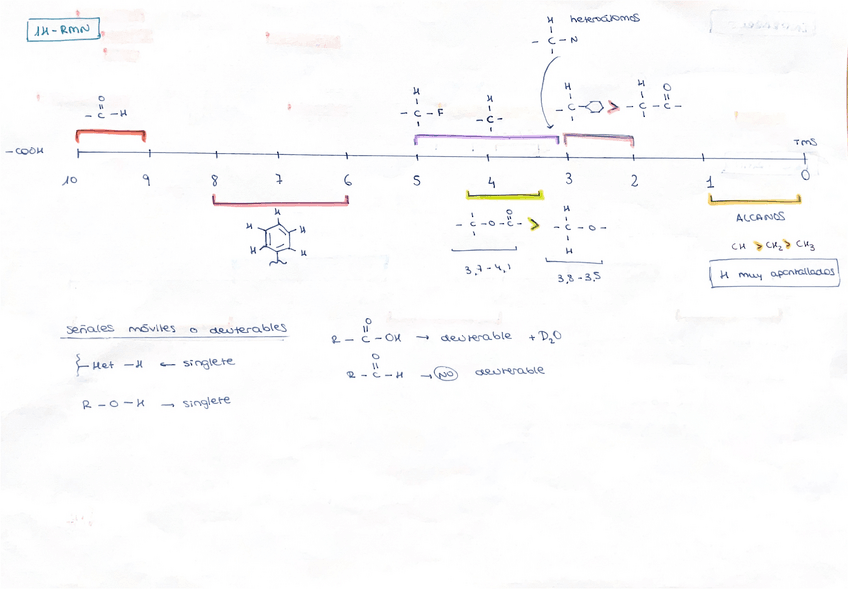 1H-RMN
H heteroátomos
- C - N
O
- C - H
H
- C - F
H
- C -
H
- C -
>
H O
- C - C -
- COOH
TMS
10 9 8 7 6 5 4 3 2 1 0
H
H H
H H
- C - O - C -
O
>
H
- C - O -
H
3,7 - 4,1
3,8 - 3,5
ALCANOS
CH > CH2 > CH3
H muy apantallados
señales móviles o deuterables
Het - H ← singlete
R - O - H → singlete
O
R - C - OH → deuterable + D2O
O
R - C - H → NO deuterable